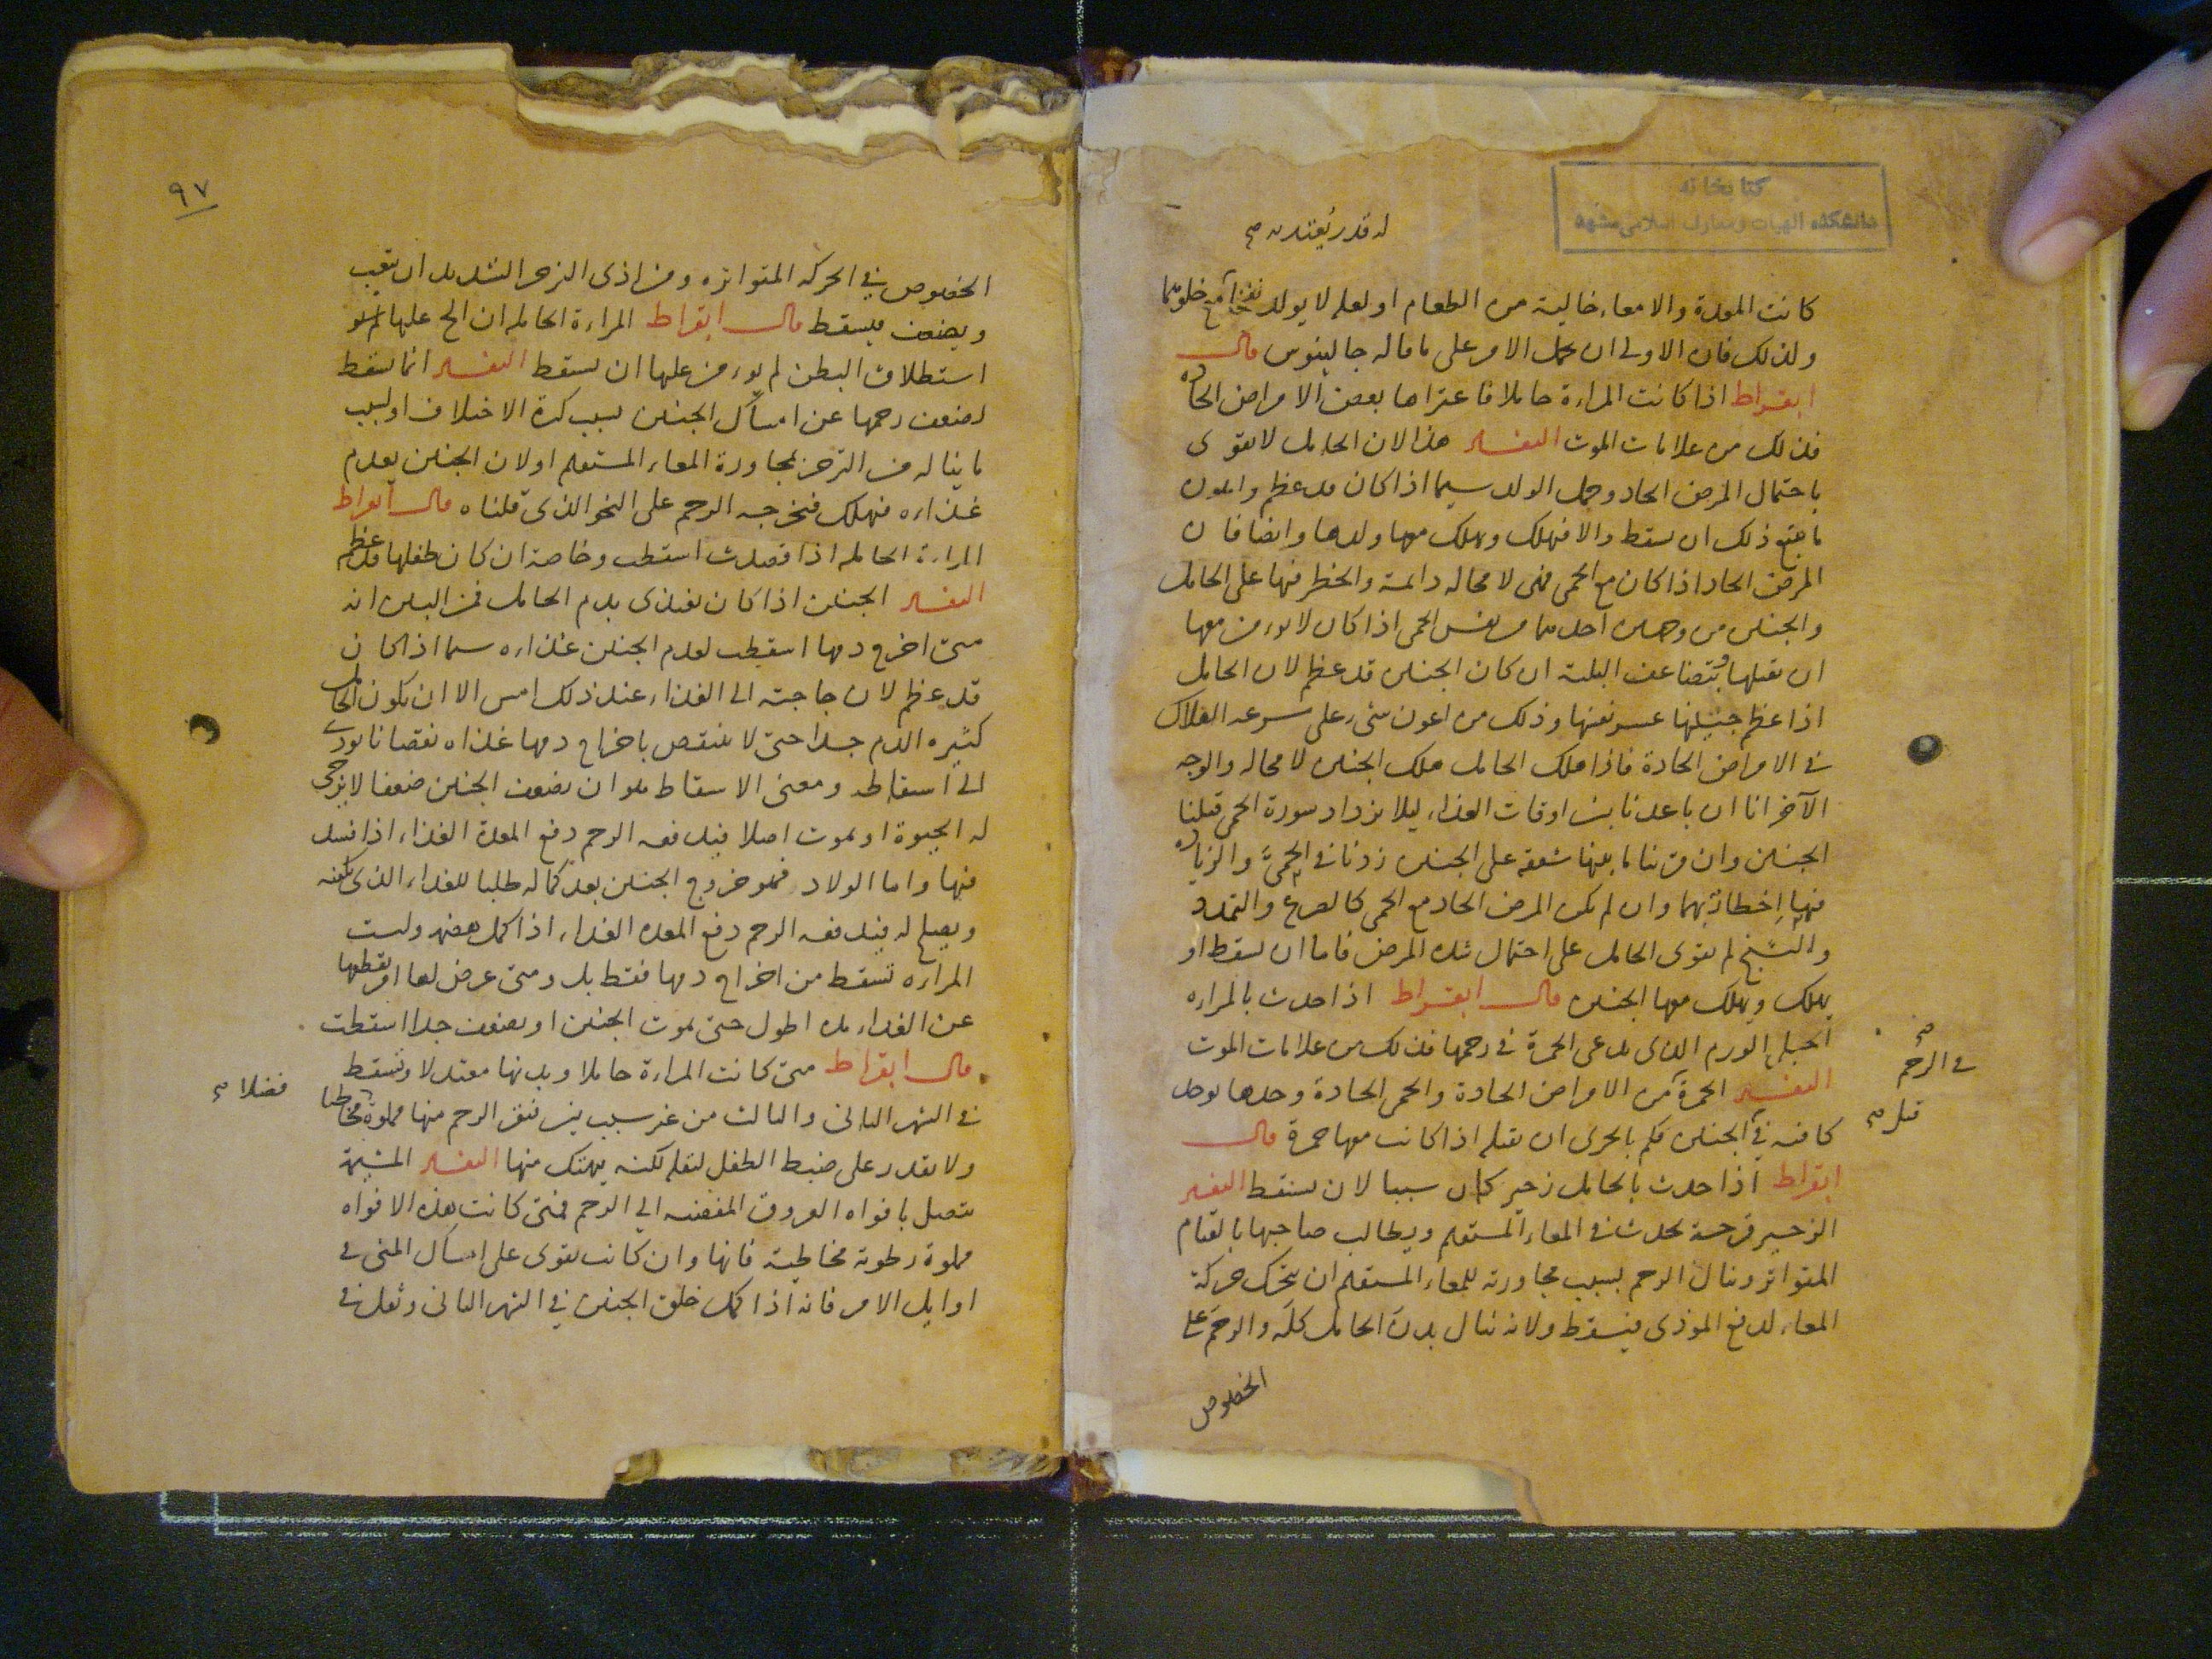 كتابخانه
دانشكده الهيات و معارف اسلامى مشهد
له قدر يُعتد به صح
كانت المعدة والامعاء خالية من الطعام او لعله لا يولد نفخا مع خلوهما
ولذلك فان الاولى ان يحمل الامر على ما قاله جالينوس قال
ابقراط اذا كانت المراءة حاملا فاعتراها بعض الامراض الحادة
فذلك من علامات الموت التفسير هذا لان الحامل لا تقوى
باحتمال المرض الحاد وحمل الولد سيما اذا كان قد عظم واهون
ما يتبع ذلك ان تسقط والا فتهلك ويهلك معها ولدها وايضا فان
المرض الحاد اذا كان مع الحمى فهى لا محالة دائمة والخطر فيها على الحامل
والجنين من وجهين احدهما من نفس الحمى اذا كان لا يؤمن معها
ان تقتلها وتتضاعف البلية ان كان الجنين قد عظم لان الحامل
اذا عظم جنينها عسر نفسها وذلك من اعون شىء على سرعة الهلاك
فى الامراض الحادة فاذا هلك الحامل هلك الجنين لا محالة والوجه
الآخر انا ان باعدنا بين اوقات الغذاء ليلا يزداد سورة الحمى قتلنا
الجنين وان قربنا ما بينها شفقة على الجنين زدنا فى الحمى والزيادة
فيها اخطار بهما وان لم يكن المرض الحاد مع الحمى كالصرع والتمدد
والتشنج لم تقوى الحامل على احتمال شدة المرض فاما ان تسقط او
تهلك ويهلك معها الجنين قال ابقراط اذا حدث بالمراءه
الحبلى الورم الذى يدعى الحمرة فى رحمها فذلك من علامات الموت
فى الرحم صح
التفسير الحمرة من الامراض الحادة والحمى الحادة وحدها توجد
كافية فى الجنين فكم بالحرى ان تقتله اذا كانت معها حمرة قال
قتل صح
ابقراط اذا حدث بالحامل زحير كان سببا لان تسقط التفسير
الزحير قرحة تحدث فى المعاء المستقيم ويطالب صاحبها بالقيام
المتواتر وينال الرحم بسبب مجاورته للمعاء المستقيم ان يتحرك حركة
المعاء لدفع الموذى فيسقط ولانه ينال بدن الحامل كله والرحم على
الخصوص
٩٧
الخصوص فى الحركه المتواتره ومن اذى الزحير الشديد ان يتعب
ويضعف فيسقط قال ابقراط المراءة الحامل ان الح عليها
استطلاق البطن لم يؤمن عليها ان تسقط التفسير انما تسقط
لضعف رحمها عن امساك الجنين بسبب كثرة الاختلاف او بسبب
ما يناله من التزحر لمجاورة المعاء المستقيم او لان الجنين يعدم
غذاءه فيهلك فتخرجه الرحم على النحو الذى قلناه قال ابقراط
المراءة الحامل اذا فصدت اسقطت وخاصة ان كان طفلها قد عظم
التفسير الجنين اذا كان يغتذى بدم الحامل فمن البين انه
متى اخرج دمها اسقطت لعدم الجنين غذاءه سيما اذا كان
قد عظم لان حاجته الى الغذاء عند ذلك امس الا ان يكون الحامل
كثيره الدم جدا حتى لا ينتقص باخراج دمها غذاه نقصانا يودى
الى اسقاطه ومعنى الاسقاط هو ان يضعف الجنين ضعفا لا يرجى
له الحيوة او يموت اصلا فيدفعه الرحم دفع المعدة الغذاء اذا فسد
فيها واما الولاد فهو خروج الجنين بعد كماله طلبا للغذاء الذى يكفيه
ويصلح له فيدفعه الرحم دفع المعدة الغذاء اذا كمل هضمه وليست
المراءه تسقط من اخراج دمها فقط بل ومتى عرض لها امر يقطعها
عن الغذاء مدة اطول حتى يموت الجنين او يضعف جدا اسقطت
قال ابقراط متى كانت المراءة حاملا وبدنها معتدلا وتسقط
فى الشهر الثانى والثالث من غير سبب بين فنقر الرحم منها مملوة مخاطا
فضلا صح
ولا يقدر على ضبط الطفل لثقله لكنه يهتك منها التفسير المشيمة
يتصل بافواه العروق المفضية الى الرحم فمتى كانت هذه الافواه
مملوة رطوبة مخاطية فانها وان كانت تقوى على امساك المنى فى
اوايل الامر فانه اذا كمل خلق الجنين فى الشهر الثانى وثقل فى